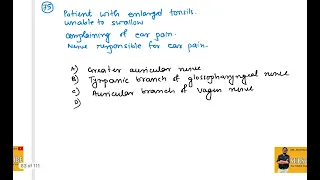 75
Patient with enlarged tonsils.
unable to swallow
complaining of ear pain.
Nerve responsible for ear pain.
A) Greater auricular nerve
B) Tympanic branch of glossopharyngeal nerve
C) Auricular branch of vagus nerve
D)
63 of 111